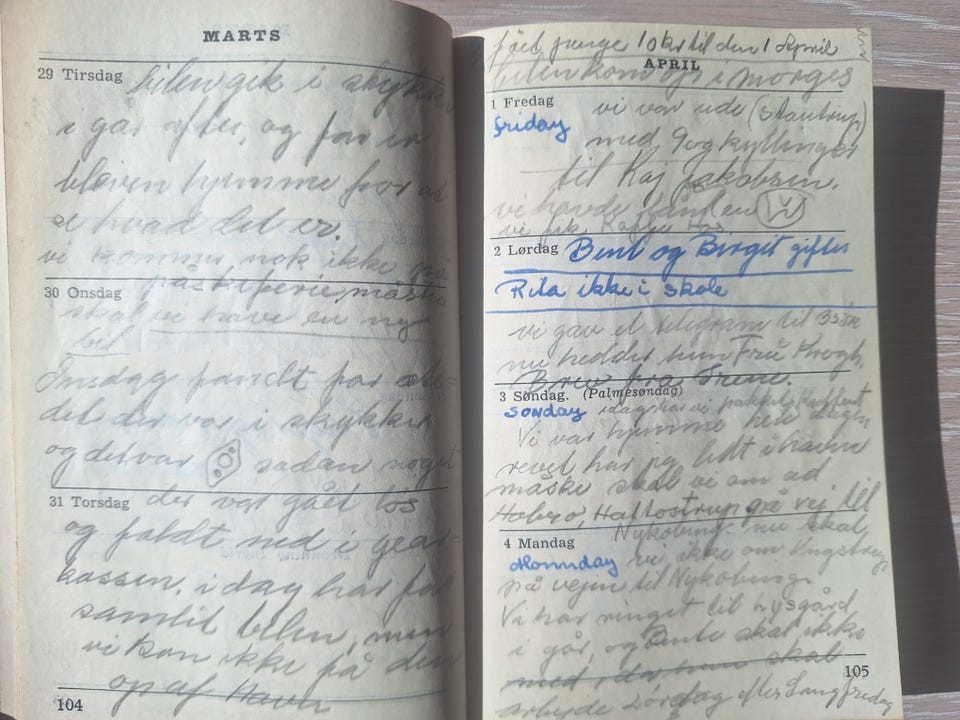 MARTS
29 Tirsdag bilen gik i stykker
i går aftes, og far er
bleven hjemme for at
se hvad det er.
vi kommer nok ikke på
påskeferie, måske
30 Onsdag
skal vi have en ny
bil
Onsdag fandt far
det der var i stykker
og det var sådan noget
31 Torsdag der var gået løs
og faldt ned i gear-
kassen. i dag har far
samlet bilen, men
vi kan ikke få den
op af
104
fået penge 10 kr til den 1 April
APRIL
bilen kom op i morges
1 Fredag vi var ude (Stautrup)
friday med 9 kyllinger
til Kaj Jakobsen.
vi havde en
vi fik Kaffe
2 Lørdag Bent og Birgit giftes
Rita ikke i skole
vi gav et telegram til
nu hedder hun Fru Krogh.
Brev fra
3 Søndag. (Palmesøndag)
sonday idag har vi
Vi var hjemme hele dagen
revet har jeg lidt i haven
måske skal vi om ad
Hobro, på vej til
Nykøbing. nu skal
4 Mandag
Monnday vi ikke om
på vejen til Nykøbing.
Vi har ringet til Lysgård
i går, og skal ikke
med, for han skal
arbejde Lørdag efter Langfredag
105